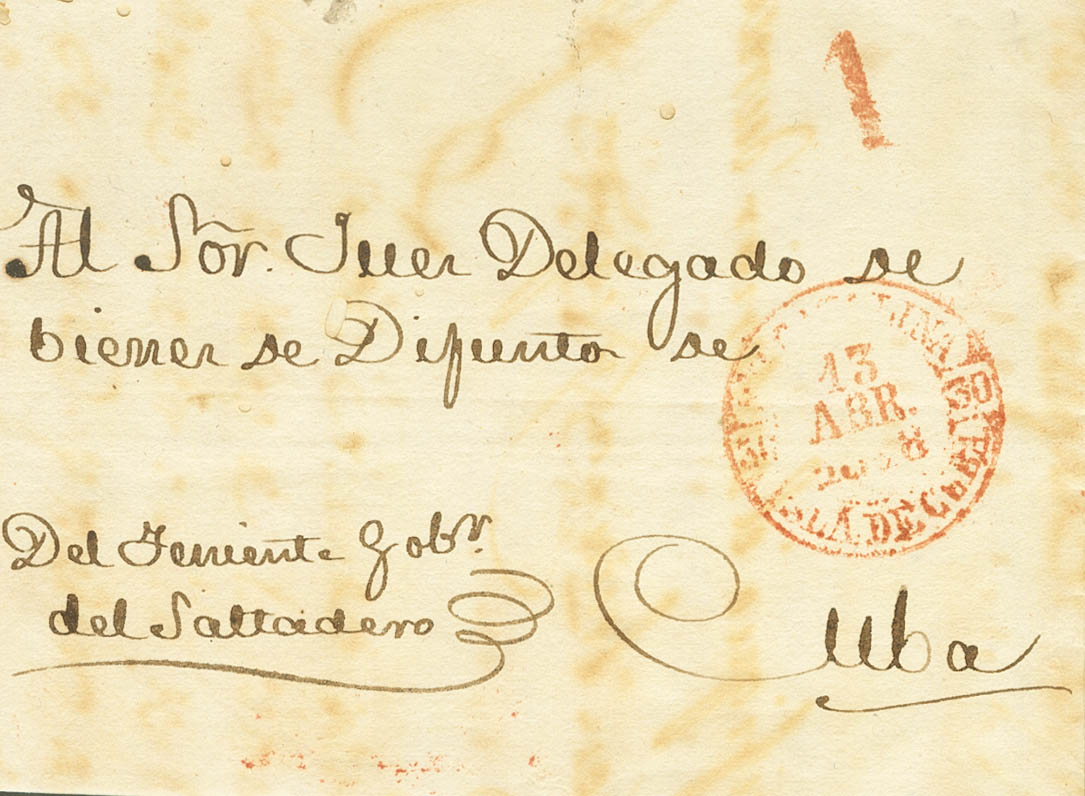 1
Al Sor. Juez Delegado de
bienes de Difuntos de
13
ABR.
30
ISLA DE CUBA
Del Teniente Gobr.
del Saltadero
Cuba